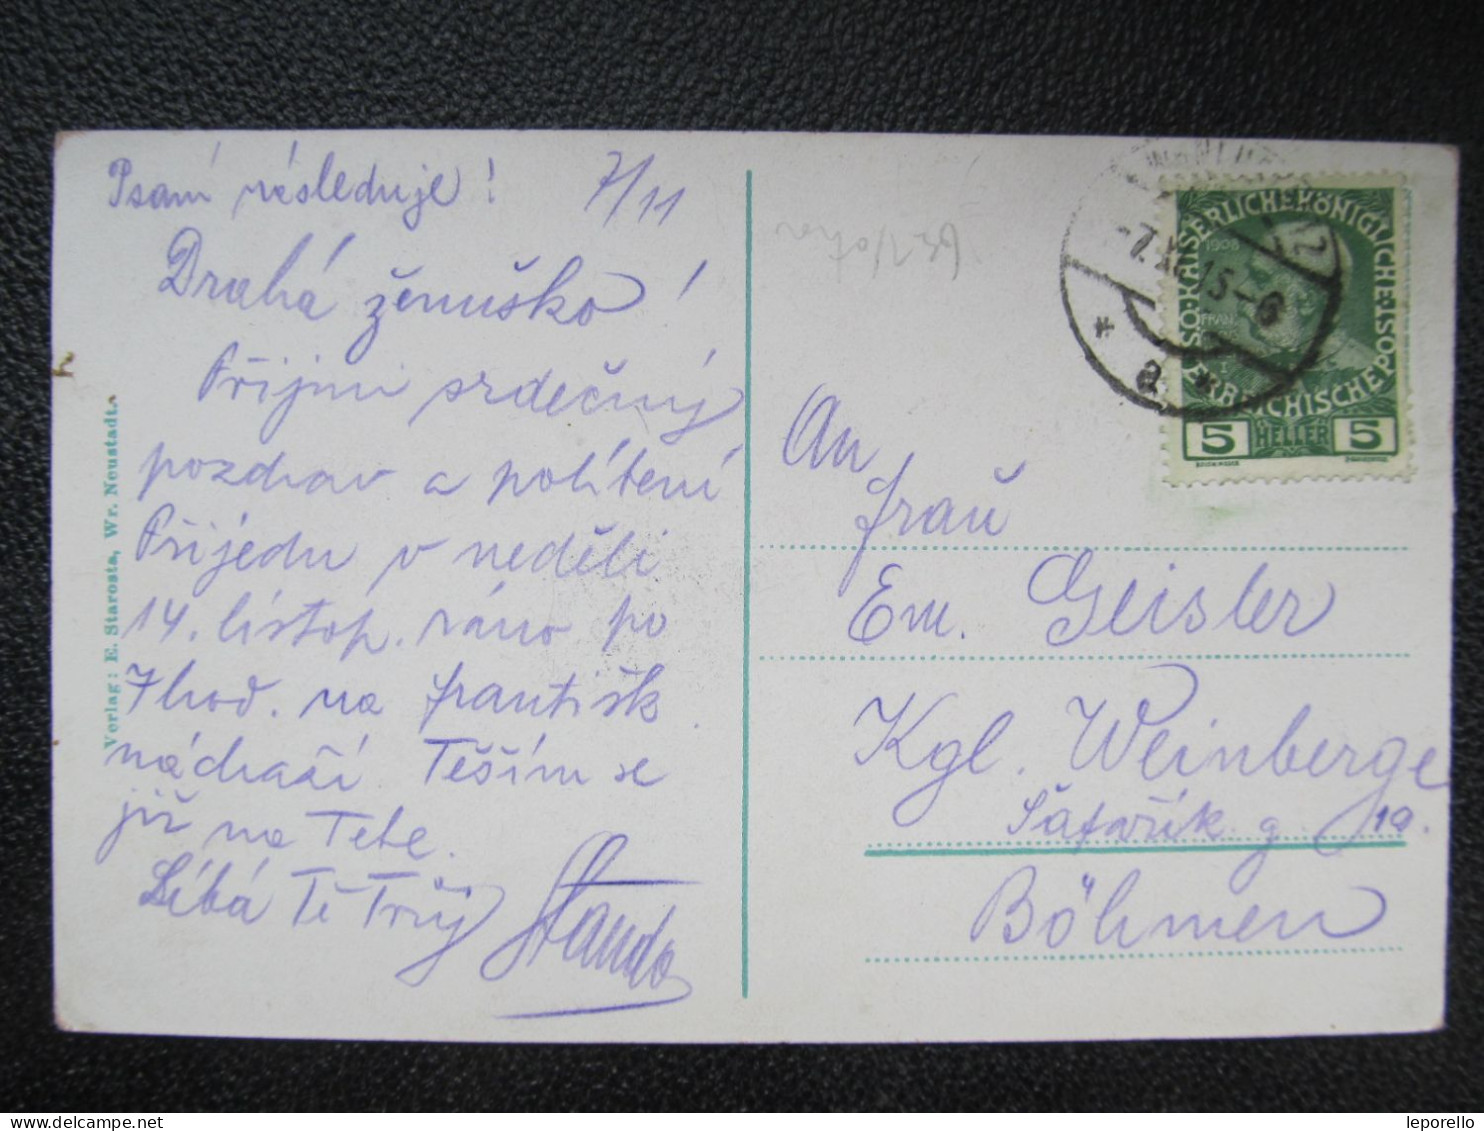 Psaní následuje! 7/11
Drahá ženuško!
Přijmi srdečný
pozdrav a políbení
Přijedu v neděli
14. listop. ráno po
7 hod. na františk
nádraží. Těším se
již na Tebe.
Líbá Tě Tvůj Standa
Verlag: E. Starosta, Wr. Neustadt.
-7.XI.15-6
* a *
KAISERLICHE KÖNIGLICHE ÖSTERREICHISCHE POST
1908
5 HELLER 5
An
frau
Em. Geisler
Kgl. Weinberge
Šafařík g 19.
Böhmen
leporello